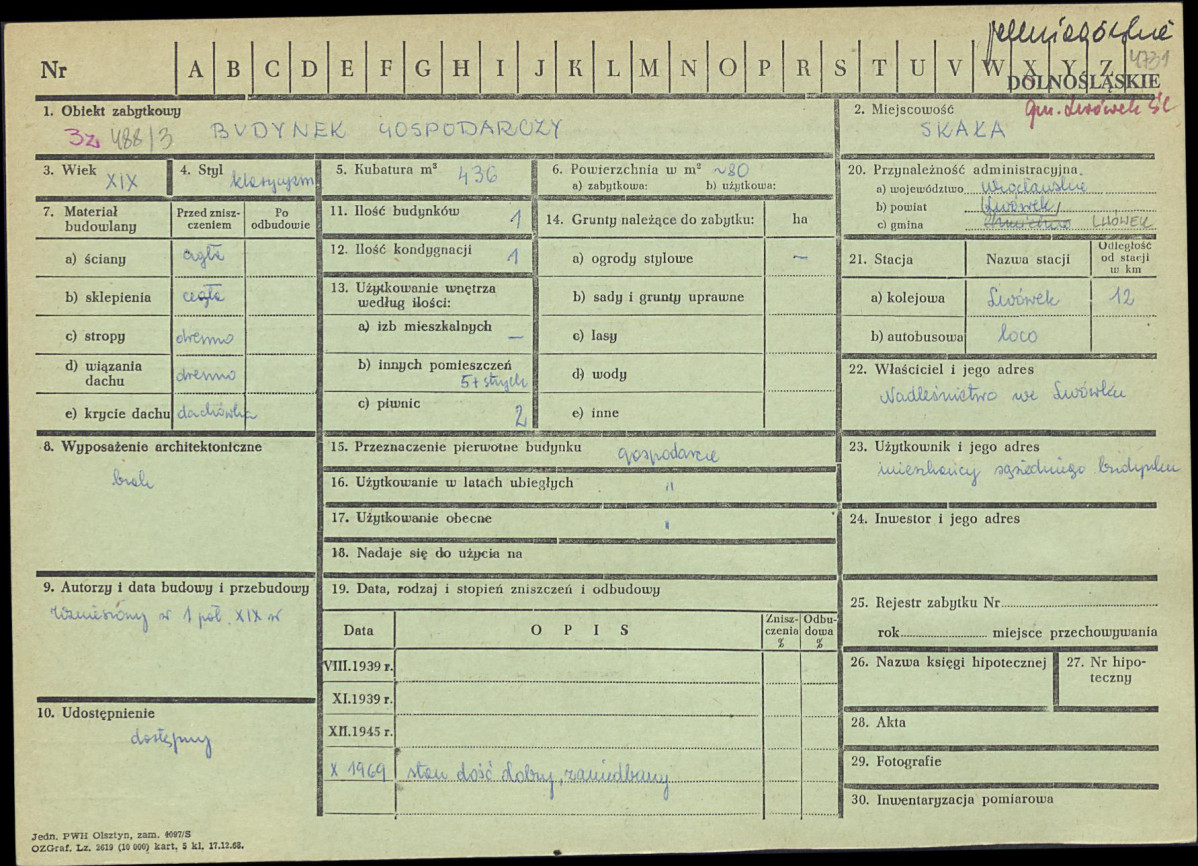 jeleniogórskie
4731
Nr A B C D E F G H I J K L M N O P R S T U V W X Y Z
DOLNOŚLĄSKIE
1. Obiekt zabytkowy
3z 488/3 BUDYNEK GOSPODARCZY
2. Miejscowość gm. Lwówek Śl
SKAŁA
3. Wiek XIX
4. Styl klasycyzm
5. Kubatura m³ 436
6. Powierzchnia w m² ~80
a) zabytkowa: b) użytkowa:
20. Przynależność administracyjna
a) województwo wrocławskie
b) powiat Lwówek
c) gmina LWÓWEK
7. Materiał budowlany
Przed zniszczeniem
Po odbudowie
a) ściany cegła
b) sklepienia cegła
c) stropy drewno
d) wiązania dachu drewno
e) krycie dachu dachówka
11. Ilość budynków 1
12. Ilość kondygnacji 1
13. Użytkowanie wnętrza według ilości:
a) izb mieszkalnych –
b) innych pomieszczeń 5+strych
c) piwnic 2
14. Grunty należące do zabytku: ha
a) ogrody stylowe –
b) sady i grunty uprawne
c) lasy
d) wody
e) inne
21. Stacja Nazwa stacji Odległość od stacji w km
a) kolejowa Lwówek 12
b) autobusowa loco
22. Właściciel i jego adres
Nadleśnictwo we Lwówku
8. Wyposażenie architektoniczne
brak
15. Przeznaczenie pierwotne budynku gospodarcze
16. Użytkowanie w latach ubiegłych "
17. Użytkowanie obecne "
18. Nadaje się do użycia na
23. Użytkownik i jego adres
mieszkańcy sąsiedniego budynku
24. Inwestor i jego adres
9. Autorzy i data budowy i przebudowy
wzniesiony w 1 poł. XIX w
19. Data, rodzaj i stopień zniszczeń i odbudowy
Data OPIS Zniszczenia % Odbudowa %
VIII.1939 r.
XI.1939 r.
XII.1945 r.
X 1969 stan dość dobry, zaniedbany
25. Rejestr zabytku Nr
rok miejsce przechowywania
26. Nazwa księgi hipotecznej
27. Nr hipoteczny
10. Udostępnienie
dostępny
28. Akta
29. Fotografie
30. Inwentaryzacja pomiarowa
Jedn. PWH Olsztyn, zam. 4097/S
OZGraf. Lz. 2619 (10 000) kart. 5 kl. 17.12.68.